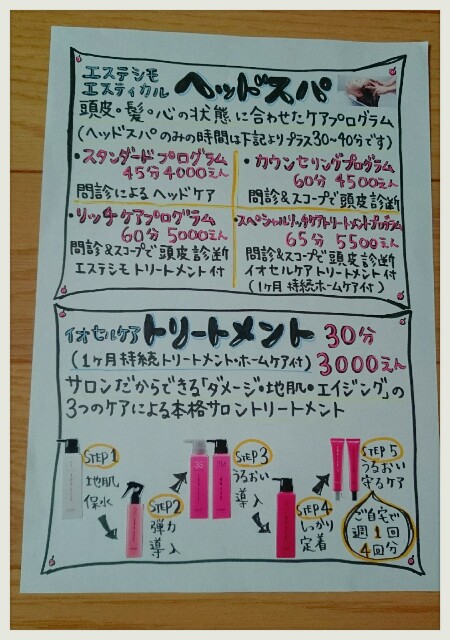 エステシモ
エスティカル ヘッドスパ
頭皮・髪・心の状態に合わせたケアプログラム
(ヘッドスパのみの時間は下記よりプラス30~40分です)
・スタンダードプログラム
45分 4000えん
問診によるヘッドケア
・カウンセリングプログラム
60分 4500えん
問診&スコープで頭皮診断
・リッチケアプログラム
60分 5000えん
問診&スコープで頭皮診断
エステシモトリートメント付
・スペシャルリッチケアトリートメントプログラム
65分 5500えん
問診&スコープで頭皮診断
イオセルケアトリートメント付
(1ヶ月持続ホームケア付)
イオセルケア トリートメント 30分
(1ヶ月持続トリートメント・ホームケア付) 3000えん
サロンだからできる「ダメージ・地肌・エイジング」の
3つのケアによる本格サロントリートメント
STEP1
地肌
保水
STEP2
弾力
導入
STEP3
うるおい
導入
STEP4
しっかり
定着
STEP5
うるおい
守るケア
ご自宅で
週1回
4回分